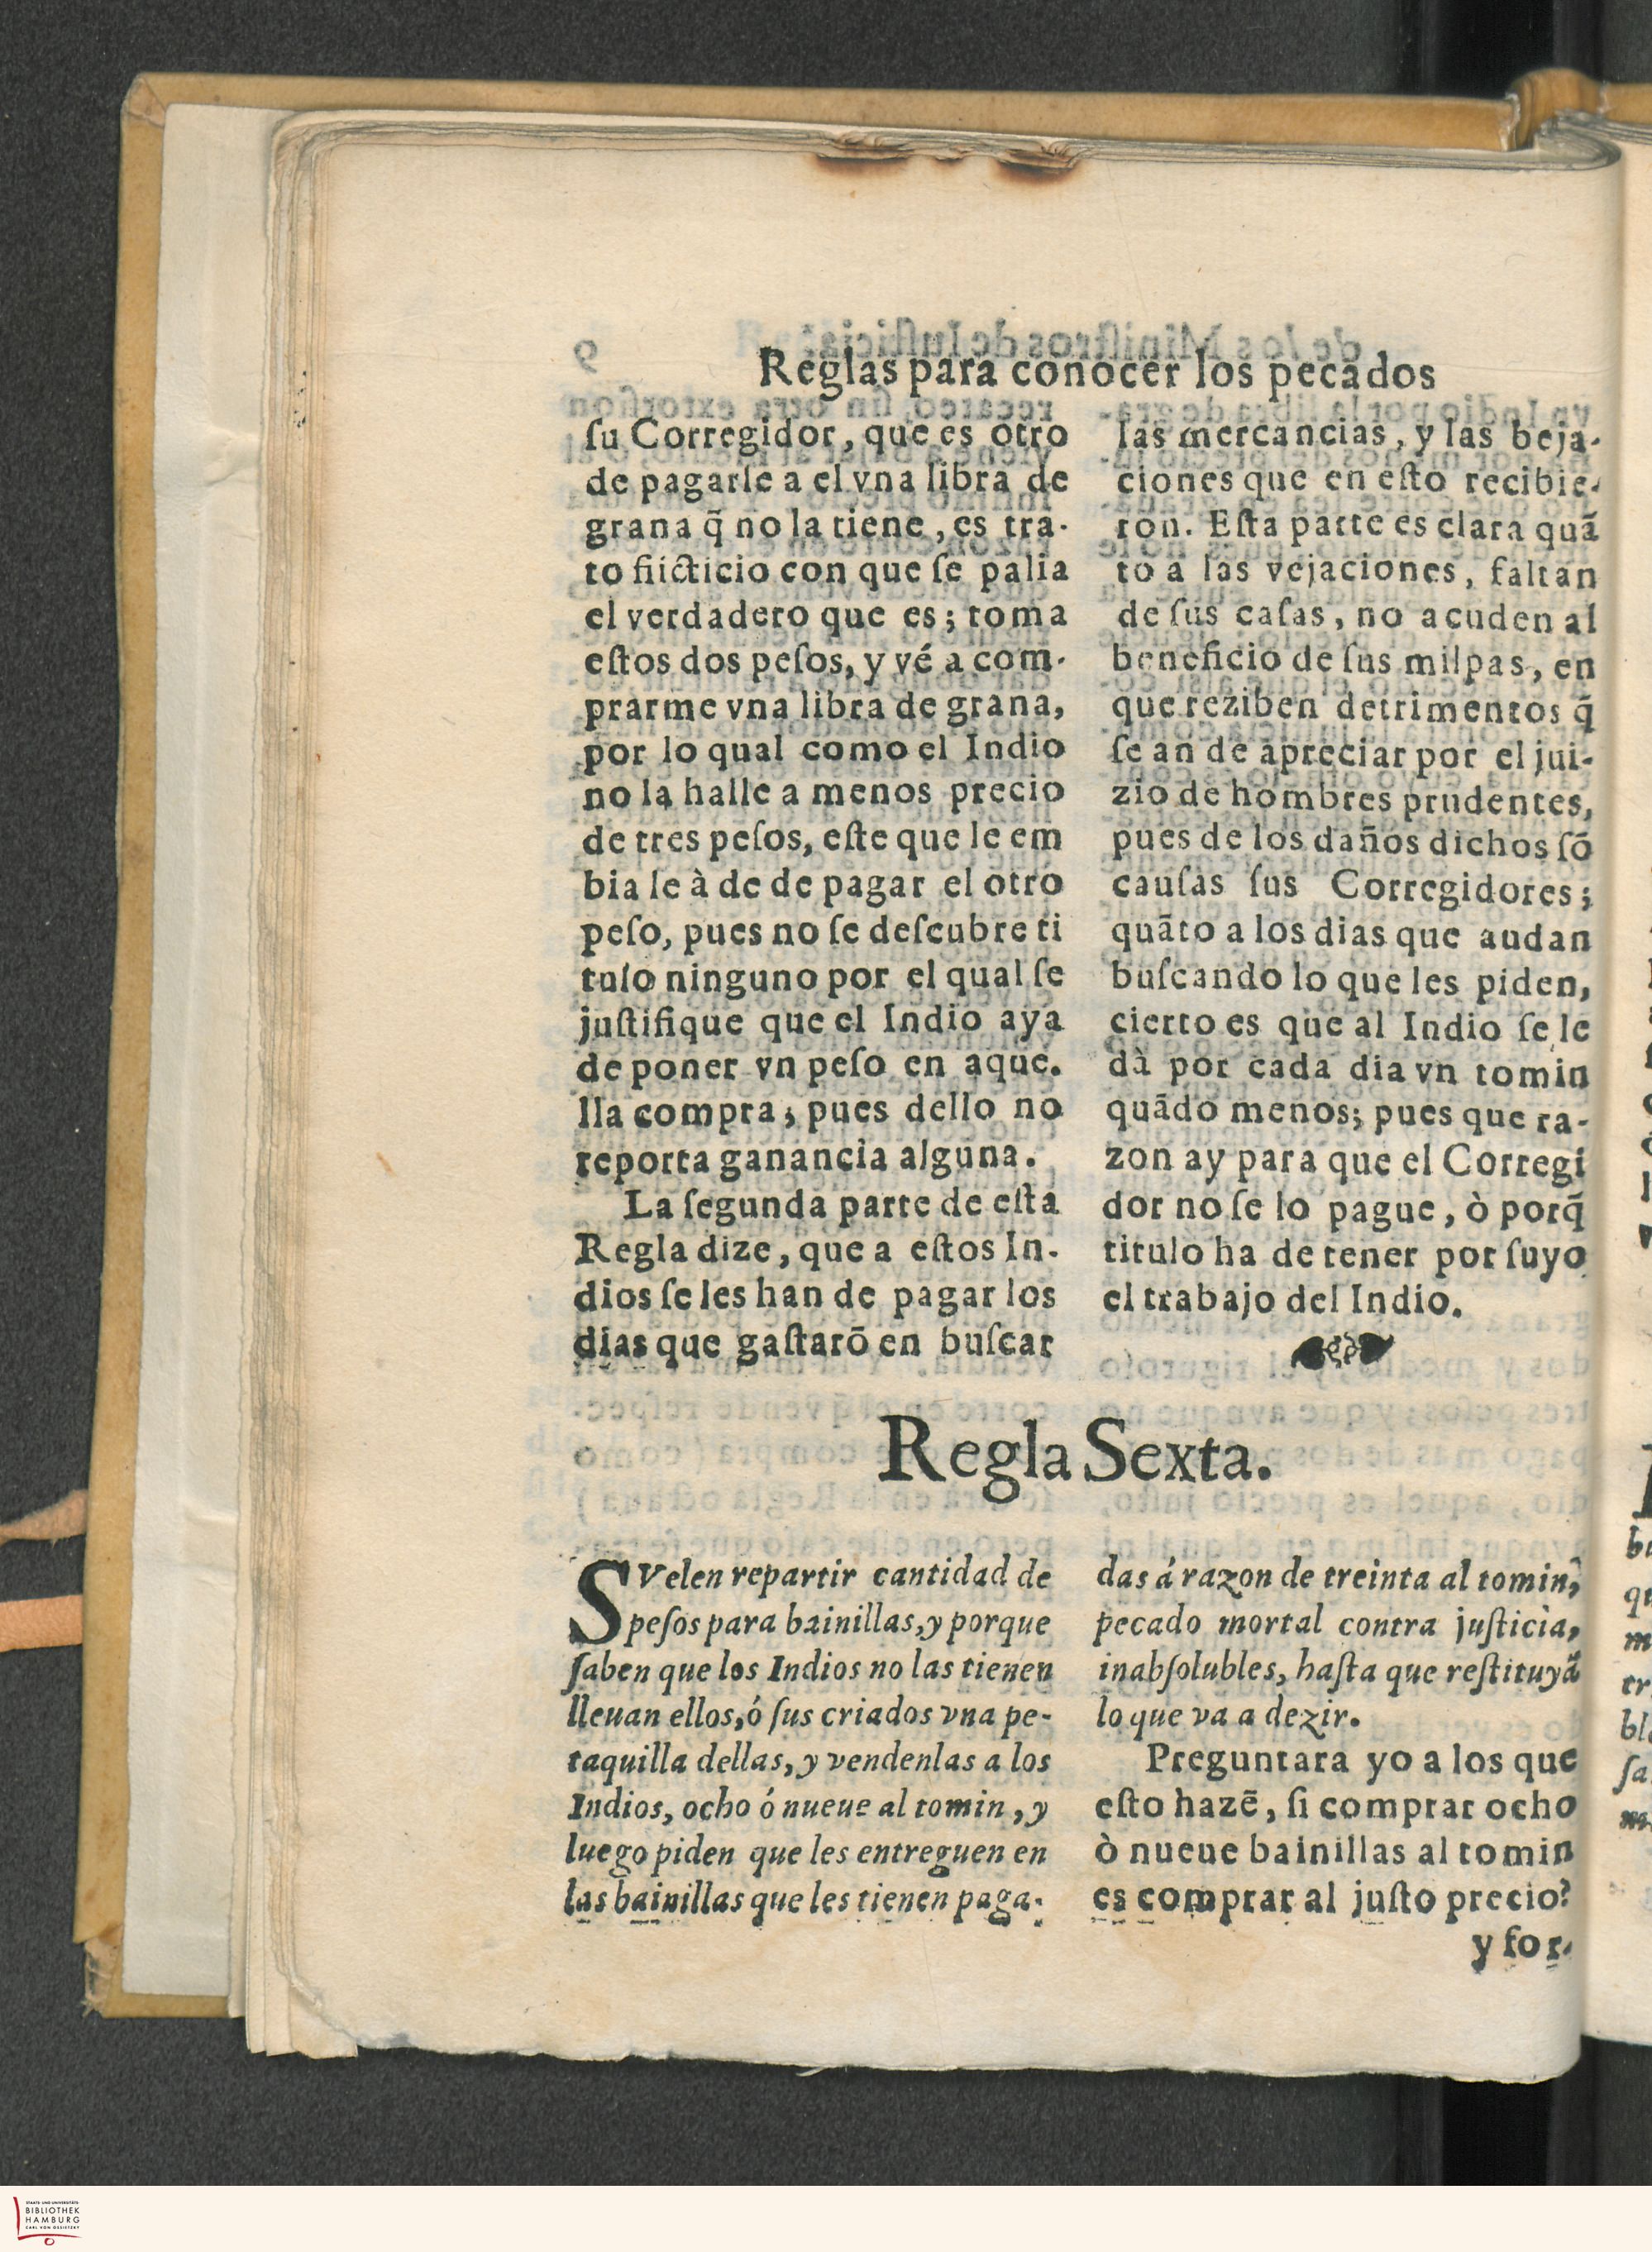 Reglas para conocer los pecados
ſu Corregidor, que es otro
de pagarle a el vna libra de
grana q̃ no la tiene, es tra-
to fiicticio con que ſe palia
el verdadero que es; toma
eſtos dos peſos, y vé a com-
prarme vna libra de grana,
por lo qual como el Indio
no la halle a menos precio
de tres peſos, eſte que le em
bia le à de de pagar el otro
peſo, pues no ſe deſcubre ti
tulo ninguno por el qual ſe
juſtifique que el Indio aya
de poner vn peſo en aque.
lla compra; pues dello no
reporta ganancia alguna.
La ſegunda parte de eſta
Regla dize, que a eſtos In-
dios ſe les han de pagar los
dias que gaſtarō en buſcar
las mercancias, y las beja-
ciones que en eſto recibie-
ron. Eſta parte es clara quã
to a las vejaciones, faltan
de ſus caſas, no acuden al
beneficio de ſus milpas, en
que reziben detrimentos q̃
ſe an de apreciar por el jui-
zio de hombres prudentes,
pues de los daños dichos ſō
cauſas ſus Corregidores;
quãto a los dias que audan
buſcando lo que les piden,
cierto es que al Indio ſe le
dà por cada dia vn tomin
quãdo menos; pues que ra-
zon ay para que el Corregi
dor no ſe lo pague, ò porq̃
titulo ha de tener por ſuyo
el trabajo del Indio.
Regla Sexta.
SVelen repartir cantidad de
peſos para bainillas, y porque
ſaben que los Indios no las tienen
lleuan ellos, ó ſus criados vna pe-
taquilla dellas, y vendenlas a los
Indios, ocho ó nueue al tomin, y
luego piden que les entreguen en
las bainillas que les tienen paga-
das á razon de treinta al tomin,
pecado mortal contra juſticia,
inabſolubles, haſta que reſtituyã
lo que va a dezir.
Preguntara yo a los que
eſto hazē, ſi comprar ocho
ò nueue bainillas al tomin
es comprar al juſto precio?
y for-
STAATS- UND UNIVERSITÄTS-
BIBLIOTHEK
HAMBURG
CARL VON OSSIETZKY